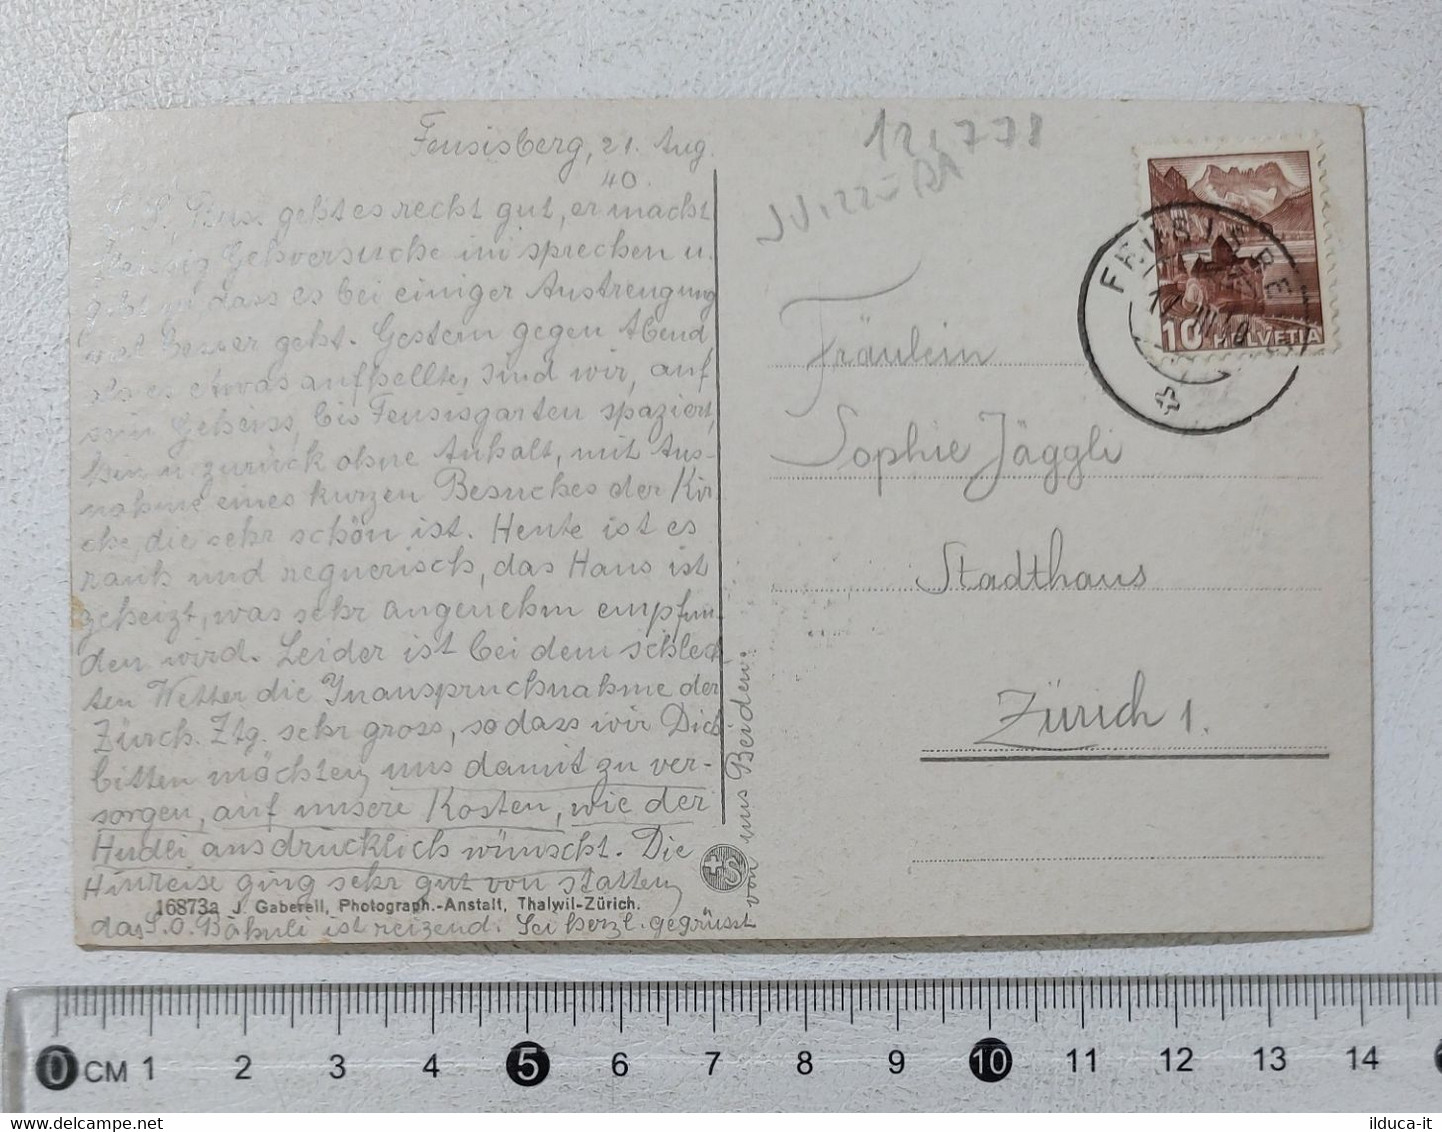 Feusisberg, 21. Aug.
40.
geht es recht gut, er macht
Gehversuche im sprechen u.
dass es bei einiger Anstrengung
besser geht. Gestern gegen Abend
als es etwas aufhellte, sind wir, auf
sein Geheiss, bis Feusisgarten spaziert,
hin u. zurück ohne Anhalt, mit Aus-
nahme eines kurzen Besuches der Kir-
che, die sehr schön ist. Heute ist es
rauh und regnerisch, das Haus ist
geheizt, was sehr angenehm empfun-
den wird. Leider ist bei dem schlech-
ten Wetter die Inanspruchnahme der
Zürch. Ztg. sehr gross, so dass wir Dich
bitten möchten, uns damit zu ver-
sorgen, auf unsere Kosten, wie der
ausdrücklich wünscht. Die
Hinreise ging sehr gut von statten,
das S.O. Bähnli ist reizend. Sei herzl. gegrüsst
von uns Beiden.
16873a J. Gaberell, Photograph.-Anstalt, Thalwil-Zürich.
12,778
Fräulein
Sophie Jäggli
Stadthaus
Zürich 1.
10 HELVETIA
0 CM 1 2 3 4 5 6 7 8 9 10 11 12 13 14
ilduca-it